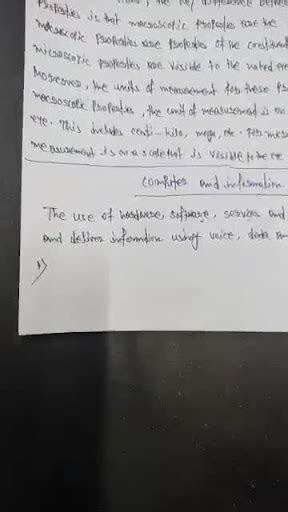 Properties is that macroscopic Properties are the
macroscopic Properties are Properties of the constituent
microscopic Properties are visible to the naked eye
Moreover, the units of measurement for these
macroscopic Properties, the unit of measurement is on
eye. This includes centi-kilo, mega, etc. For
measurement is on a scale that is visible to the eye
Computer and information
The use of hardware, software, services and
and deliver information using voice, data